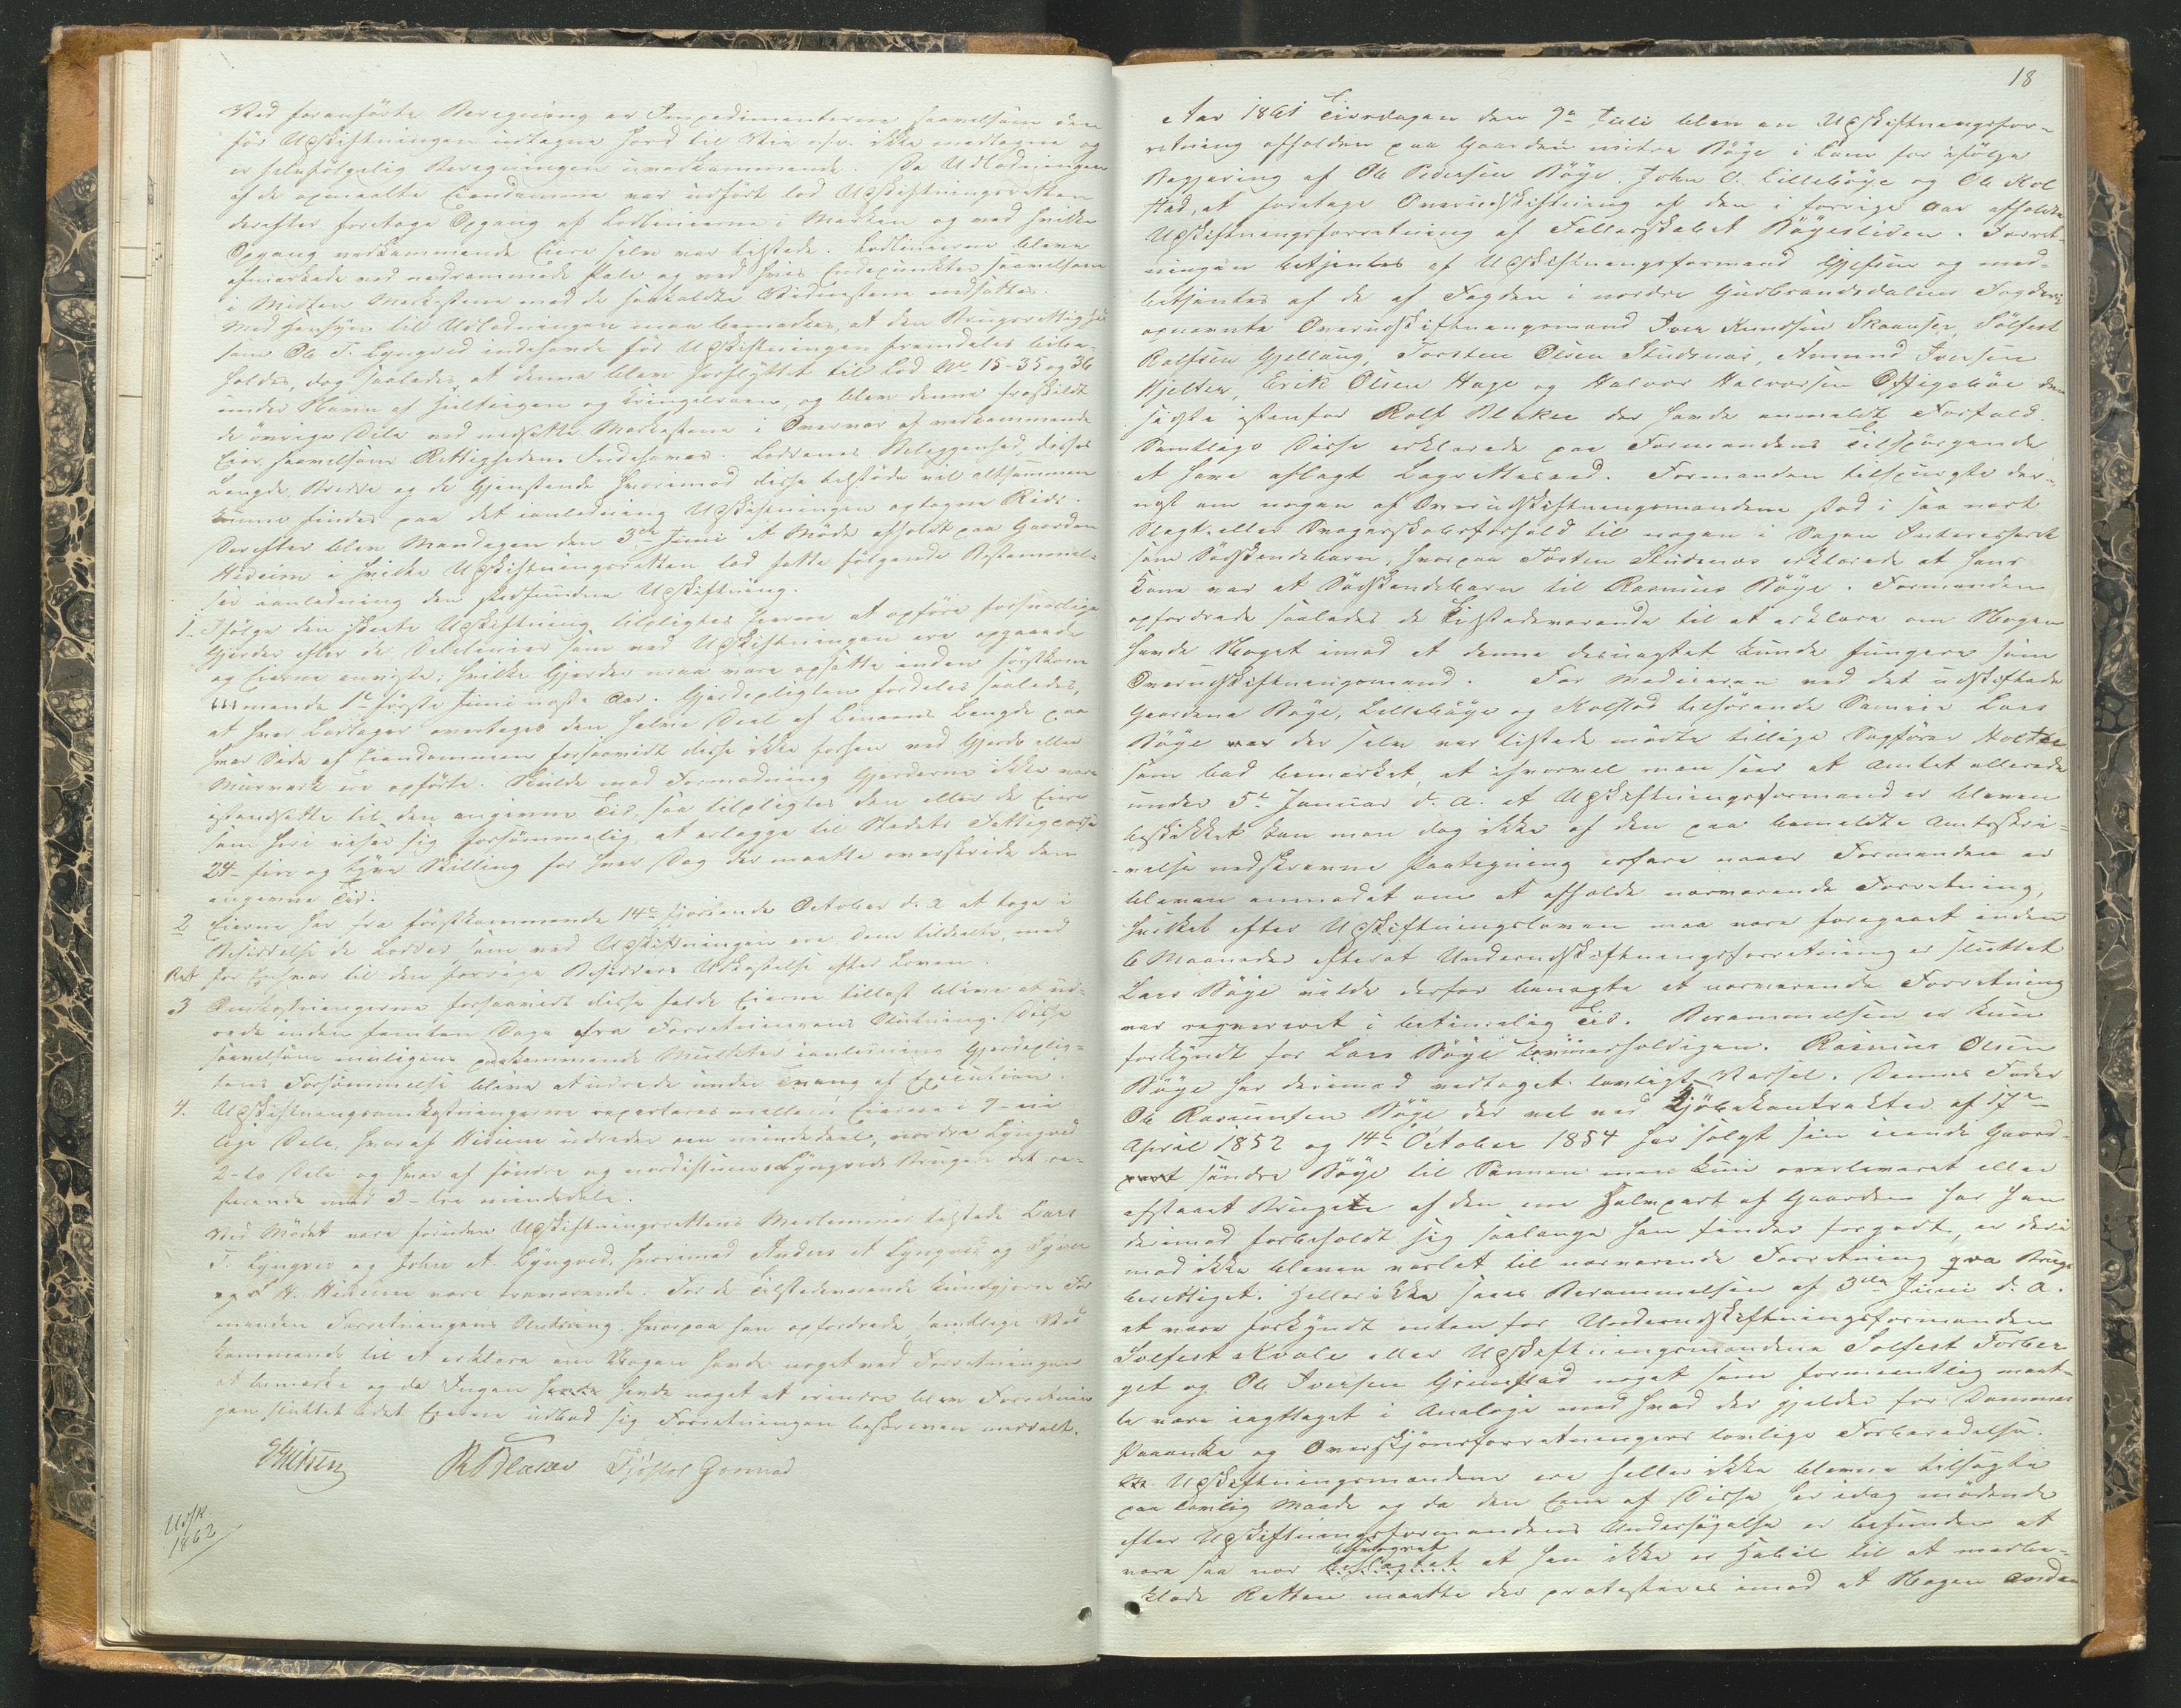 Ved foranførte Beregning er Impedimenterne saavelsom den
før Udskiftningen udtagne Jord til Vei o.s.v. ikke medtagne og
er selvfølgelig Beregningen uvedkommende. Da Udlodningen
af de opmaalte Eiendomme var udført lod Udskiftningsretten
derefter foretage Opgang af Lodlinierne i Marken og ved hvilke
Opgang vedkommende Eiere selv var tilstede. Lodlinierne bleve
afmærkede ved nedrammede Pæle og ved hvers Endepunkter saavelsom
i Midten Markestene med de saakaldte Vidnestene nedsatte.
Med Hensyn til Udlodningen maa bemærkes, at den Brugsrettighed
som Ole T. Lyngved indehavde før Udskiftningen fremdeles bibe-
holdes, dog saaledes, at denne blev forflyttet til Lod No 15-35 og 36
under Navn af og og blev denne fraskildt
de øvrige Dele ved nedsatte Markestene i Overvær af vedkommende
Eier, saavelsom Rettighedens Indehaver. Loddernes Beliggenhed, disses
Længde, Bredde og de Gjenstande hvorimod disse tilstøde vil altsammen
kunne findes paa det ianledning Udskiftningen optagne Rids.
Derefter blev Mandagen den 3die Juni et Møde afholdt paa Gaarden
Hideim i hvilke Udskiftningsretten lod fatte følgende Bestemmel-
ser ianledning den stedfundne Udskiftning.
1. Ifølge den skeete Udskiftning tilpligtes Eierne at opføre forsvarlige
Gjerder efter de Delelinier som ved Udskiftningen ere opgaaede
og Eierne anviste; hvilke Gjerder maa være opsatte inden førstkom
mende 1te første Juni næste Aar. Gjerdepligten fordeles saaledes,
at hver Lodtager overtages den halve Deel af Liniens Længde paa
hver Side af Eiendommen forsaavidt disse ikke forhen ved Gjerde eller
Muurværk ere opførte. Skulde mod Formodning Gjerderne ikke være
istandsatte til den angivne Tid, saa tilpligtes den eller de Eiere
som heri viser sig forsømmelig, at erlægge til Stedets Fattigcasse
24 fire og tyve Skilling for hver Dag der maatte overskride den
angivne Tid.
2 Eierne har fra førstkommende 14de fjortende October d. A. at tage i
Besiddelse de Lodder som ved Udskiftningen ere Dem tildeelte, med
Ret for Enhver til den forrige Besidders Udkastelse efter Loven.
3 Omkostningerne forsaavidt disse falde Eierne tillast blive at ud-
rede inden femten Dage fra Forretningens Slutning. Disse
saavelsom muligens paakommende Mulkter ianledning Gjerdeplig-
tens Forsømmelse blive at udrede under Tvang af Execution.
4. Udskiftningsomkostningerne reparteres mellem Eierne i 9 – ni
lige Dele, hvoraf Hideim udreder een niendedeel, nordre Lyngved
2-to Dele og hver af søndre og nordistuens Lyngveds Brugere det re-
sterende med 3-tre niendedele.
Ved Mødet vare foruden Udskiftningsrettens Medlemmer tilstede Lars
T. Lyngved og John A. Lyngved, hvorimod Anders A Lyngved og Syver
og H. Hideim vare fraværende. For de Tilstedeværende kundgjorde For
manden Forretningens Slutning, hvorpaa han opfordrede samtlige Ved
kommende til at erklære om Nogen havde noget ved Forretningen
at bemærke og da Ingen havde havde noget at erindre blev Forretnin
gen sluttet idet Eierne udbad sig Forretningen beskreven meddeelt.
R Blakar Tjøstol Gonnad
Udsk.
1862
18
Aar 1861 Tirsdagen den 9de Juli blev en Udskiftningsfor-
retning afholden paa Gaarden midtre Bøye i Lom for ifølge
Begjæring af Ole Pedersen Bøye, John O. Lillebøye og Ole Kol
stad, at foretage Overudskiftning af den i forrige Aar afholdte
Udskiftningsforretning af Fællesskabet Bøyeslien. Forret-
ningen betjentes af Udskiftningsformand og med-
betjentes af de af Fogden i nordre Gudbrandsdalens Fogderi
opnævnte Overudskiftningsmænd Iver Knudsen Skaanser, Sølfest
Rolfsen Gjelling, Torsten Olsen Studenæs, Amund Iversen
Hjelter, Erik Olsen Hage og Halvor Halvorsen Offigsbøe den
sidste istenfor Rolf Blaker der havde anmeldt Forfald.
Samtlige Disse erklærede paa Formandens Tilspørgende
at have aflagt Lagretteseed. Formanden tilspurgte der-
næst om nogen af Overudskiftningsmændene stod i saa nært
Slægt- eller Svogerskabsforhold til nogen i Sagen Interesseret
som Sødskendebarn, hvorpaa Torsten Studenæs erklærede at hans
Kone var et Sødskendebarn til Rasmus Bøye. Formanden
opfordrede saaledes de Tilstedeværende til at erklære om Nogen
havde Noget imod at denne desuagtet kunde fungere som
Overudskiftningsmand. For Medeierne ved det udskiftede
Gaardene Bøye, Lillebøye og Kolstad tilhørende Sameie Lars
Bøye der selv var tilstede mødte tillige Sagfører Holtte
som bad bemærket, at ihvorvel man seer at Amtet allerede
under 5te Januar d. A. at Udskiftningsformand er bleven
beskikket kan man dog ikke af den paa bemeldte Amtsskri-
velse nedskrevne Paategning erfare naar Formanden er
bleven anmodet om at afholde nærværende Forretning,
hvilket efter Udskiftningsloven maa være foregaaet inden
6 Maaneder efterat Underudskiftningsforretning er sluttet
Lars Bøye vilde derfor benegte at nærværende Forretning
var reqvireret i betimelig Tid. Berammelsen er kun
forkyndt for Lars Bøye Rasmus Olsen
Bøye har derimod vedtaget lovligt Varsel. Dennes Fader
Ole Rasmussen Bøye der vel ved Kjøbekontrakter af 17de
April 1852 og 14de October 1854 har solgt sin eiende Gaard-
part søndre Bøye til Sønnen men kun overleveret eller
afstaaet Brugen af den ene Halvpart af Gaarden har han
derimod forbeholdt sig saalænge han finder forgodt, er deri
mod ikke bleven varslet til nærværende Forretning qva Brugs
berettiget. Hellerikke sees Berammelsen af 3die Juni d. A.
at være forkyndt enten for Underudskiftningsformanden
Solfest Kvale eller Udskiftningsmændene Solfest Forber
get og Ole Iversen Grimstad noget som formeentlig maat-
te være iagttaget i Analogi med hvad der gjelder for Dommes
Paaanke og Overskjønsforretningers lovlige Forberedelse.
Udskiftningsmændene ere heller ikke blevne tilsagte
paa lovlig Maade og da den Eene af Disse her idag mødende
efter Udskiftningsformandens Undersøgelse er befunden at
være saa nær besvogret at han ikke er habil til at medbe-
klæde Retten maatte der protesteres imod at Nogen anden